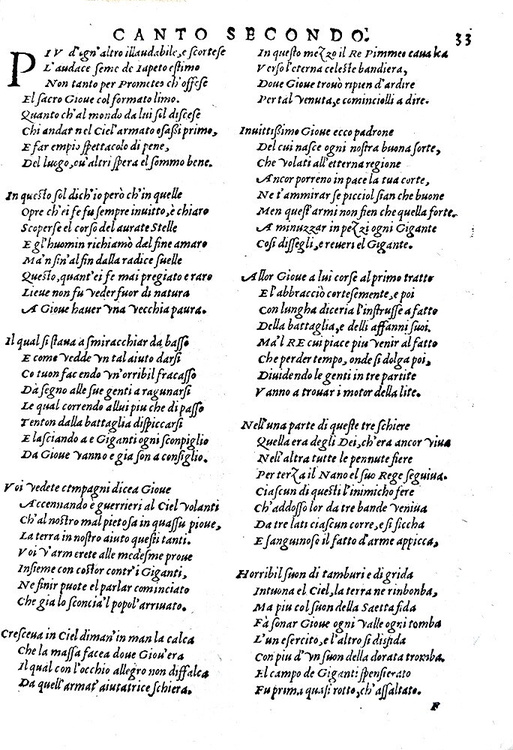 CANTO SECONDO. 33
PIV d'ogn'altro illaudabile, e scortese
L'audace seme de Iapeto estimo
Non tanto per Prometeo ch'offese
El sacro Gioue col formato limo.
Quanto ch'al mondo da lui sol discese
Chi andar nel Ciel'armato osassi primo,
E far empio spettacolo di pene,
Del luogo, cu'altri spera el sommo bene.
In questo sol dich'io però ch'in quelle
Opre ch'ei fe fu sempre inuitto, è chiaro
Scoperse el corso del aurate Stelle
E gl'huomin richiamò dal fine amaro
Ma'n fin'al fin dalla radice suelle
Questo, quant'ei fe mai pregiato e raro
Lieue non fu veder fuor di natura
A Gioue hauer vna vecchia paura.
Il qual si staua a smiracchiar da basso
E come vedde vn tal aiuto darsi
Co tuon facendo vn'orribil fracasso
Da segno alle sue genti a ragunarsi
Le qual correndo allui piu che di passo
Tenton dalla battaglia dispiccarsi
E lasciando a e Giganti ogni sconpiglio
Da Gioue vanno e gia son a consiglio.
Voi vedete compagni dicea Gioue
Accennando e guerrieri al Ciel volanti
Ch'al nostro mal pietosa in quassu pioue,
La terra in nostro aiuto questi tanti.
Voi v'armerete alle medesme proue
Insieme con costor contr'i Giganti,
Ne finir puote el parlar cominciato
Che gia lo sconcia'l popol'arriuato.
Cresceua in Ciel diman'in man la calca
Che la massa facea doue Giou'era
Il qual con l'occhio allegro non diffalca
Da quell'armat'aiutatrice schiera.
In questo mezzo il Re Pimmeo caualca
Verso l'eterna celeste bandiera,
Doue Gioue trouò ripien d'ardire
Per tal venuta, e cominciolli a dire.
Inuittißimo Gioue ecco padrone
Del cui nasce ogni nostra buona sorte,
Che volati all'etterna regione
Ancor porreno in pace la tua corte,
Ne t'ammirar se picciol sian che buone
Men quest'armi non fien che quella forte.
A minuzzar in pezzi ogni Gigante
Cosi dissegli, e reueri el Gigante.
Allor Gioue a lui corse al primo tratto
E l'abbracciò cortesemente, e poi
Con lungha diceria l'instrusse a fatto
Della battaglia, e delli affanni suoi.
Ma'l RE cui piace piu venir al fatto
Che perder tempo, onde si dolga poi,
Diuidendo le genti in tre partite
Vanno a trouar i motor della lite.
Nell'una parte di queste tre schiere
Quella era degli Dei, ch'era ancor viua
Nell'altra tutte le pennute fiere
Per terza il Nano el suo Rege seguiua.
Ciascun di questi l'inimicho fere
Ch'addosso lor da tre bande veniua
Da tre lati ciascun corre, e si ficcha
E sanguinoso il fatto d'arme appicca,
Horribil suon di tamburi e di grida
Intuona el Ciel, la terra ne rinbonba,
Ma piu col suon della Saetta fida
Fa sonar Gioue ogni valle ogni tomba
L'un esercito, e l'altro si disfida
Con piu d'vn suon della dorata tromba.
El campo de Giganti spensierato
Fu prima quasi rotto, ch'assaltato.
F